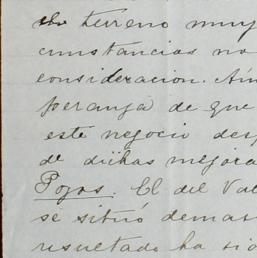 terreno muy
cunstancias no
consideracion. Aún
peranza de que
este negocio des
de dichas mejora
Pozos. El del Val
se situó demas
resultado ha sid